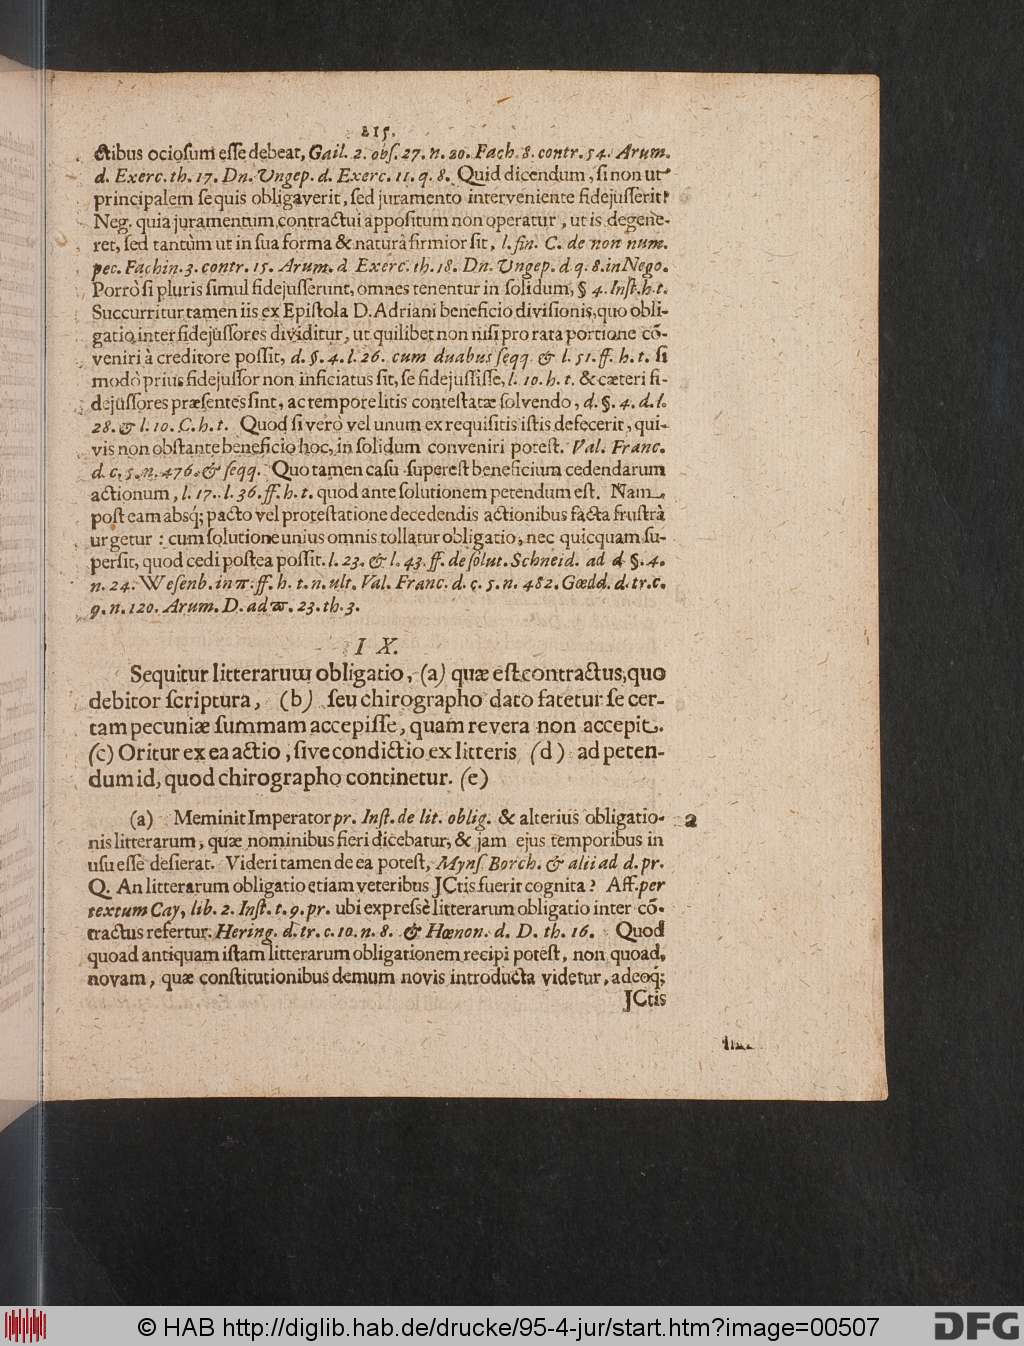 215.
ctibus ociosum esse debeat, Gail. 2. obs. 27. n. 20. Fach. 8. contr. 54. Arum.
d. Exerc. th. 17. Dn. Ungep. d. Exerc. 11. q. 8. Quid dicendum, si non ut
principalem se quis obligaverit, sed juramento interveniente fidejusserit?
Neg. quia juramentum contractui appositum non operatur, ut is degene-
ret, sed tantùm ut in sua forma & naturâ firmior sit, l. fin. C. de non num.
pec. Fachin. 3. contr. 15. Arum. d Exerc. th. 18. Dn. Ungep. d q. 8. in Nego.
Porrò si pluris simul fidejusserunt, omnes tenentur in solidum, § 4. Inst. h. t.
Succurritur tamen iis ex Epistola D. Adriani beneficio divisionis, quo obli-
gatio inter fidejussores dividitur, ut quilibet non nisi pro rata portione cō-
veniri à creditore possit, d. §. 4. l. 26. cum duabus seqq. & l. 51. ff. h. t. si
modò prius fidejussor non inficiatus sit, se fidejussisse, l. 10. h. t. & cæteri fi-
dejussores præsentes sint, ac tempore litis contestatæ solvendo, d. §. 4. d. l.
28. & l. 10. C. h. t. Quod si verò vel unum ex requisitis istis defecerit, qui-
vis non obstante beneficio hoc, in solidum conveniri potest. Val. Franc.
d. c. 5. n. 476. & seqq. Quo tamen casu superest beneficium cedendarum
actionum, l. 17. l. 36. ff. h. t. quod ante solutionem petendum est. Nam
post eam absq; pacto vel protestatione de cedendis actionibus facta frustrà
urgetur: cum solutione unius omnis tollatur obligatio, nec quicquam su-
persit, quod cedi postea possit. l. 23. & l. 43. ff. de solut. Schneid. ad d. §. 4.
n. 24. Wesenb. in π. ff. h. t. n. ult. Val. Franc. d. c. 5. n. 482. Gœdd. d. tr. c.
9. n. 120. Arum. D. ad ϖ. 23. th. 3.
I X.
Sequitur litterarum obligatio, (a) quæ est contractus, quo
debitor scriptura, (b) seu chirographo dato fatetur se cer-
tam pecuniæ summam accepisse, quam revera non accepit.
(c) Oritur ex ea actio, sive condictio ex litteris (d) ad peten-
dum id, quod chirographo continetur. (e)
(a) Meminit Imperator pr. Inst. de lit. oblig. & alterius obligatio- a
nis litterarum, quæ nominibus fieri dicebatur, & jam ejus temporibus in
usu esse desierat. Videri tamen de ea potest, Myns. Borch. & alii ad d. pr.
Q. An litterarum obligatio etiam veteribus JCtis fuerit cognita? Aff. per
textum Cay, lib. 2. Inst. t. 9. pr. ubi expressè litterarum obligatio inter cō-
tractus refertur. Hering. d. tr. c. 10. n. 8. & Hœnon. d. D. th. 16. Quod
quoad antiquam istam litterarum obligationem recipi potest, non quoad,
novam, quæ constitutionibus demum novis introducta videtur, adeoq;
JCtis
© HAB http://diglib.hab.de/drucke/95-4-jur/start.htm?image=00507
DFG